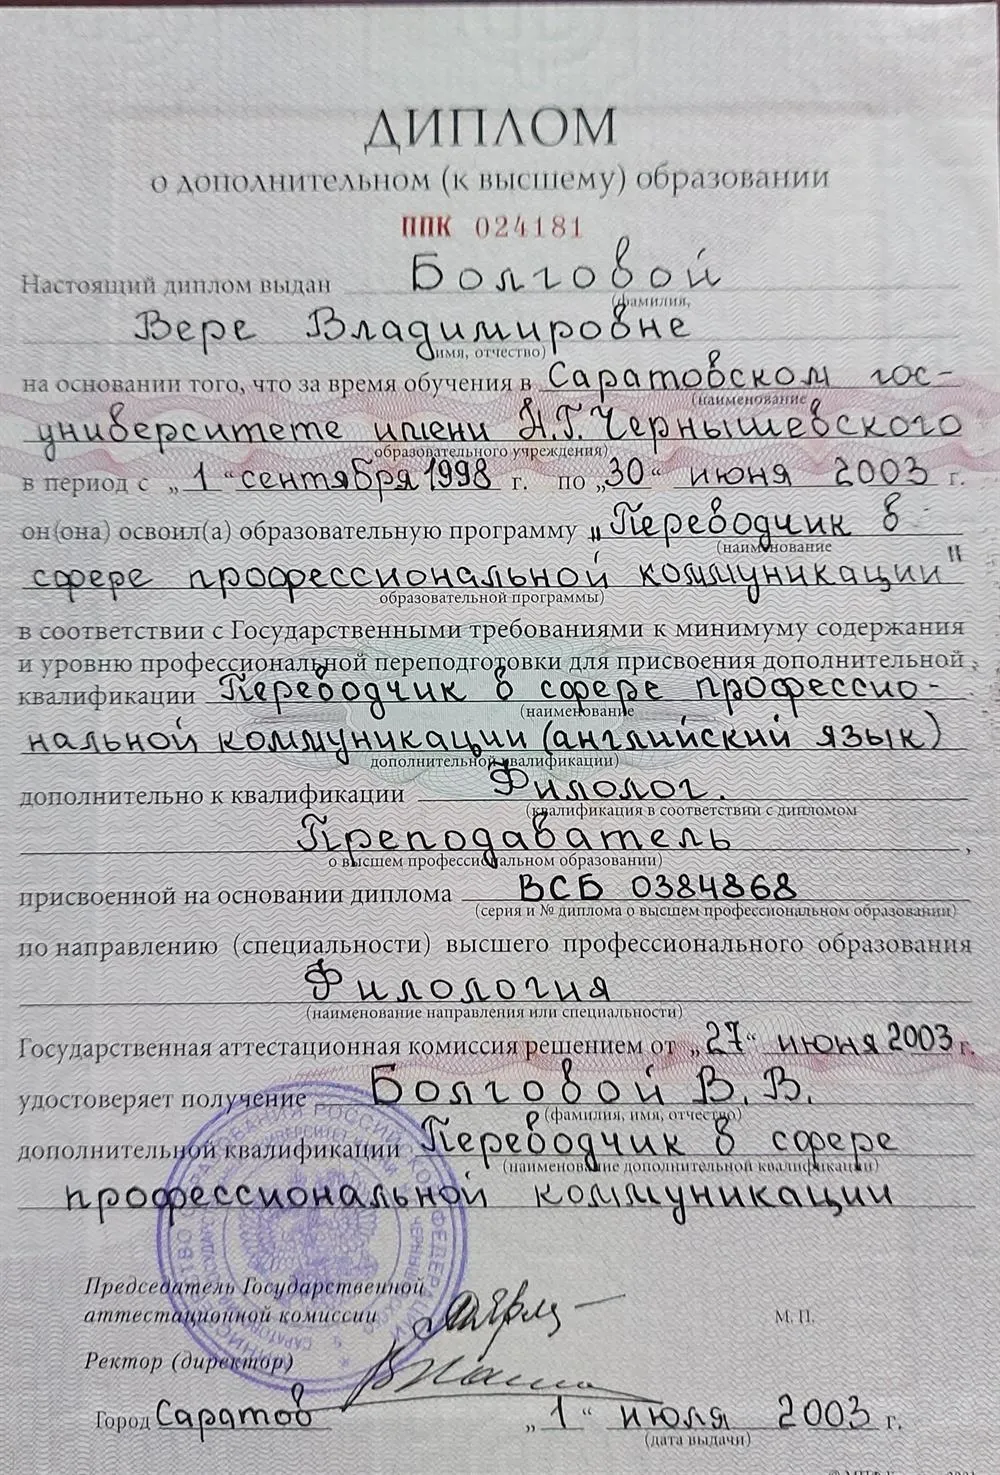 ДИПЛОМ
о дополнительном (к высшему) образовании
ППК 024181
Настоящий диплом выдан Болговой
(фамилия,
Вере Владимировне
имя, отчество)
на основании того, что за время обучения в Саратовском гос-
(наименование
университете имени Н.Г.Чернышевского
образовательного учреждения)
в период с „1“ сентября 1998 г. по „30“ июня 2003 г.
он(она) освоил(а) образовательную программу „Переводчик в
(наименование
сфере профессиональной коммуникации"
образовательной программы)
в соответствии с Государственными требованиями к минимуму содержания
и уровню профессиональной переподготовки для присвоения дополнительной
квалификации Переводчик в сфере профессио-
(наименование
нальной коммуникации (английский язык)
дополнительной квалификации)
дополнительно к квалификации Филолог.
(квалификация в соответствии с дипломом
Преподаватель,
о высшем профессиональном образовании)
присвоенной на основании диплома ВСБ 0384868
(серия и № диплома о высшем профессиональном образовании)
по направлению (специальности) высшего профессионального образования
Филология
(наименование направления или специальности)
Государственная аттестационная комиссия решением от „27“ июня 2003 г.
удостоверяет получение Болговой В.В.
(фамилия, имя, отчество)
дополнительной квалификации Переводчик в сфере
(наименование дополнительной квалификации)
профессиональной коммуникации
Председатель Государственной
аттестационной комиссии
М. П.
Ректор (директор)
Город Саратов „1“ июля 2003 г.
(дата выдачи)